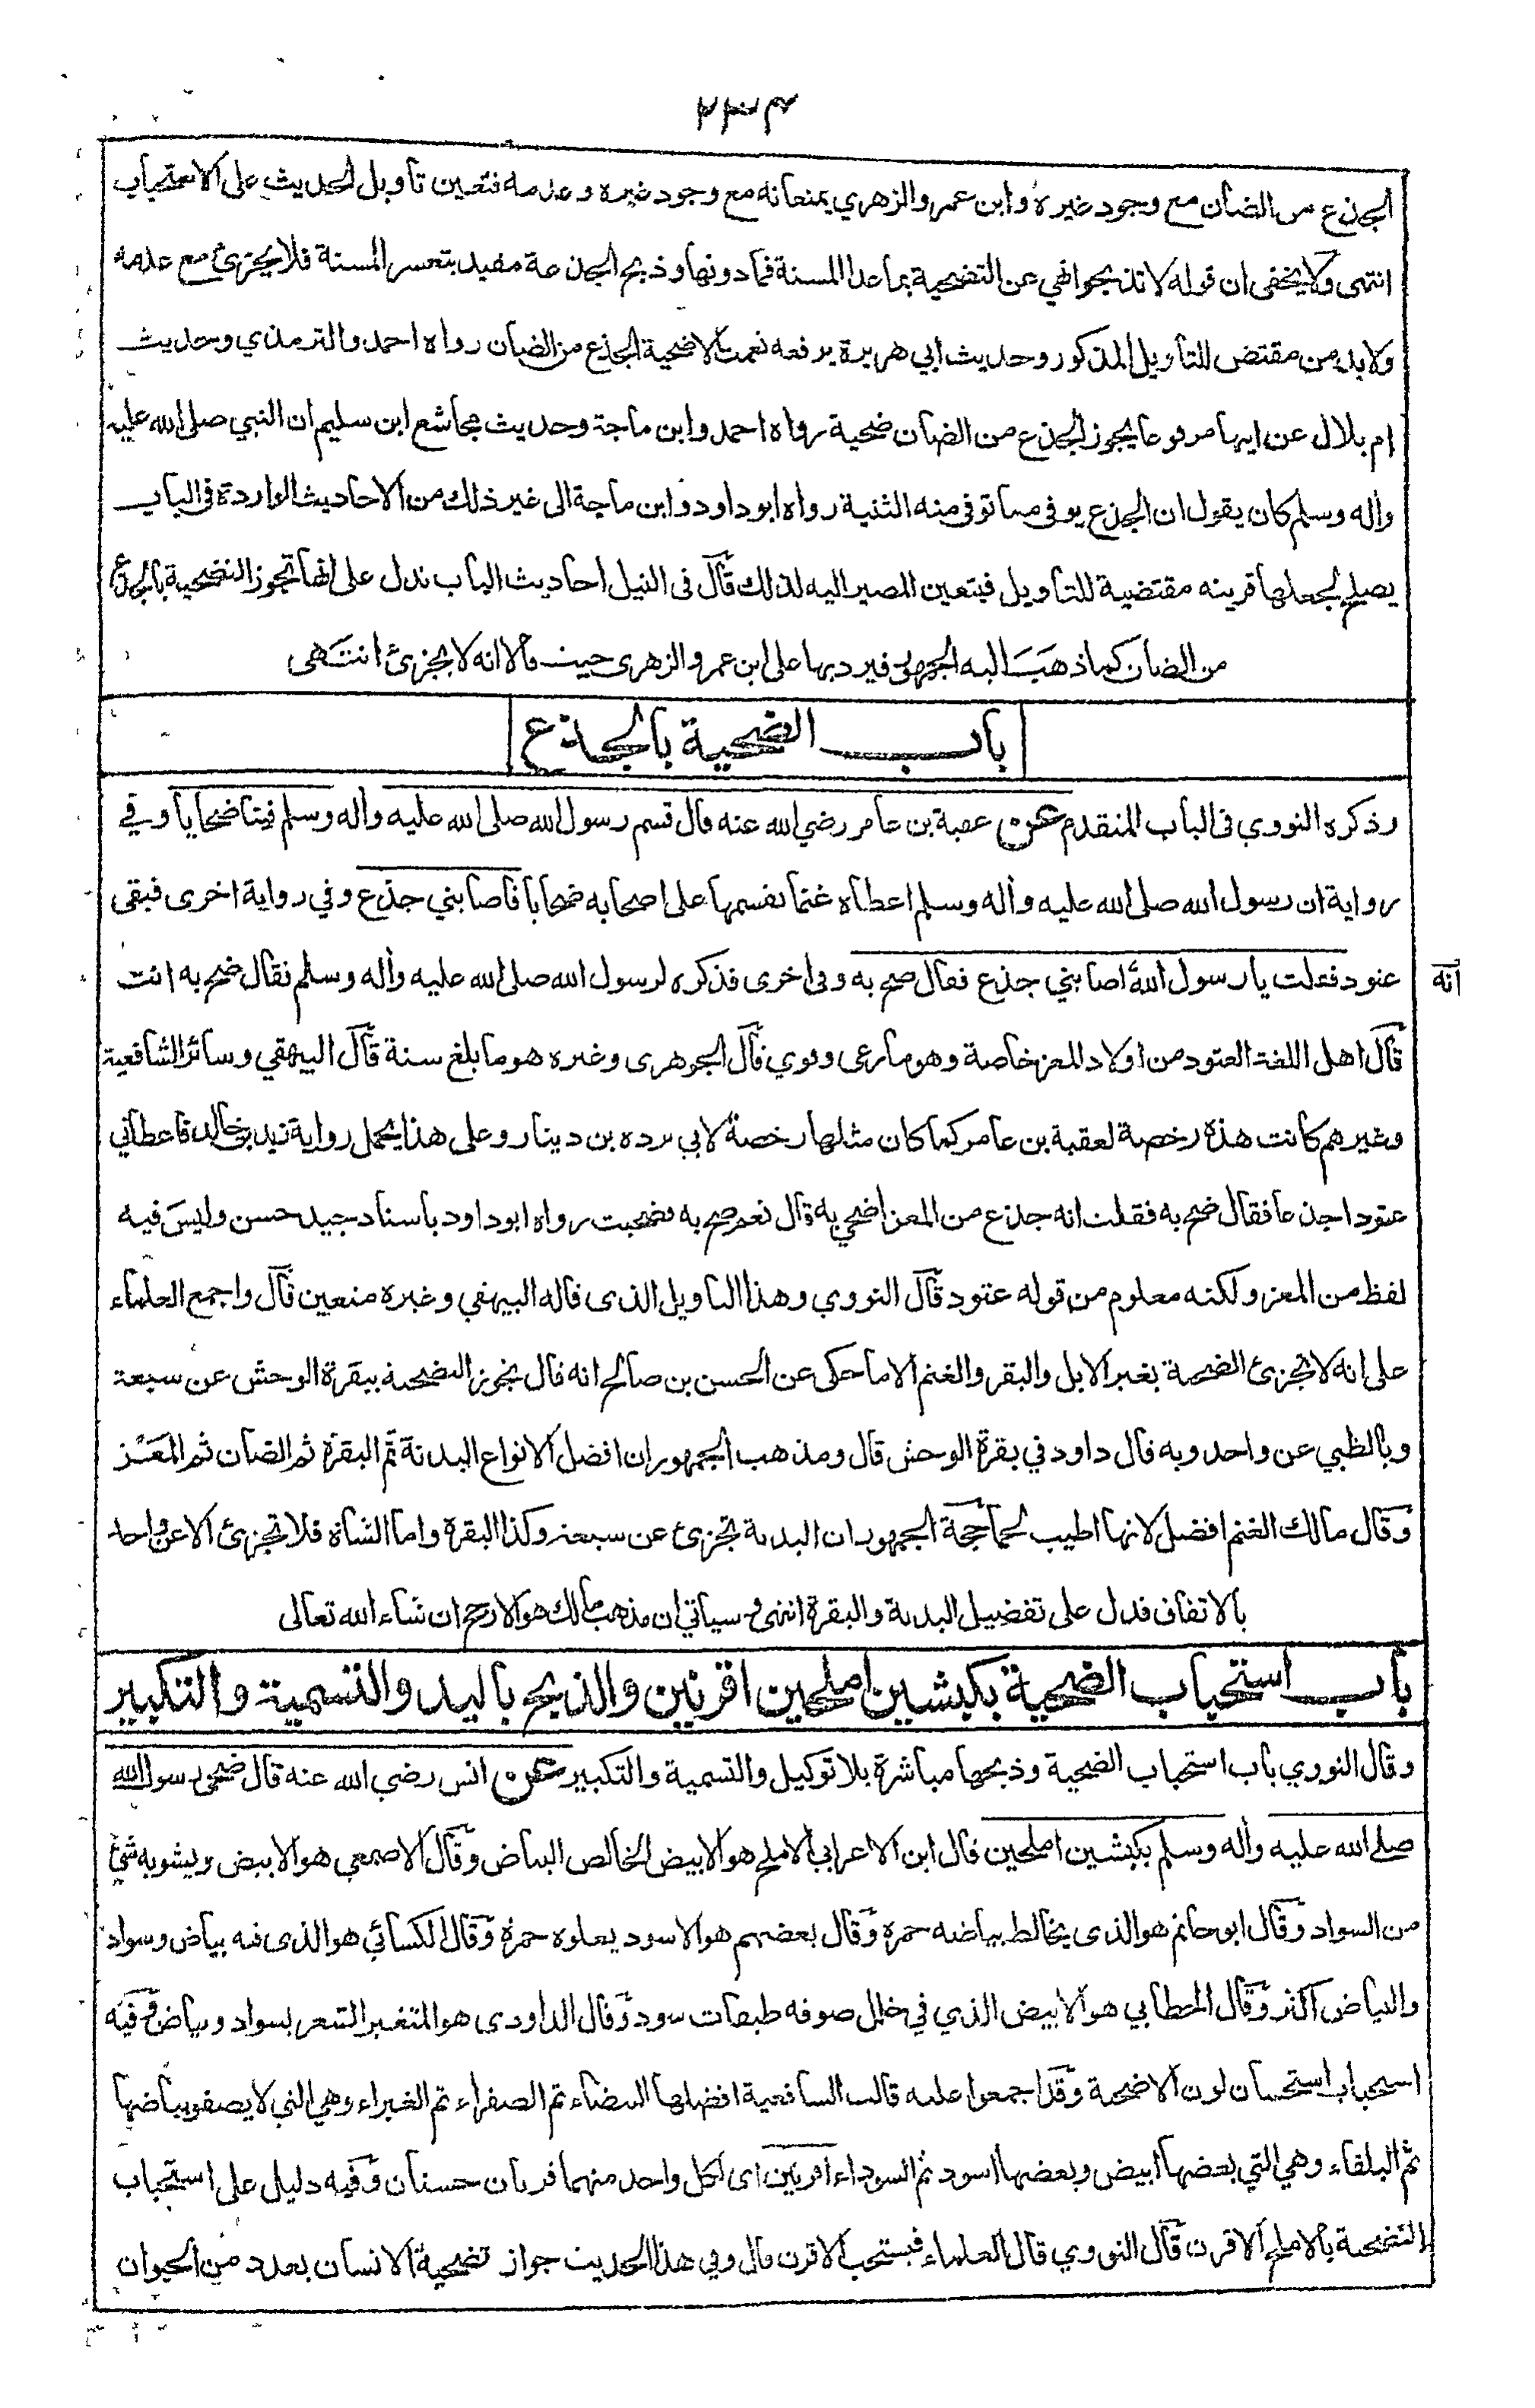 ٢٣٤
الجذع من الضأن مع وجود غيره وابن عمر والزهري يمنعانه مع وجود غيره وعدمه فتعين تأويل الحديث على الاستحباب
انتهى ولا يخفى ان قوله لا تذبحوا نهي عن التضحية بما عدا المسنة فما دونها وذبح الجذعة مقيد بتعسر المسنة فلا يجزئ مع عدمه
ولا بد من مقتض للتأويل المذكور وحديث ابي هريرة يرفعه نعمت الاضحية الجذع من الضأن رواه احمد والترمذي وحديث
ام بلال عن ابيها مرفوعا يجوز الجذع من الضأن ضحية رواه احمد وابن ماجة وحديث مجاشع ابن سليم ان النبي صلى الله عليه
واله وسلم كان يقول ان الجذع يوفى مما توفى منه الثنية رواه ابو داود وابن ماجة الى غير ذلك من الاحاديث الواردة في الباب
يصلح لجعلها قرينه مقتضية للتأويل فيتعين المصير اليه لذلك قال في النيل احاديث الباب تدل على انها تجوز التضحية بالجذع
من الضأن كما ذهب اليه الجمهور فيرد بها على ابن عمر والزهرى حيث قالا انه لا يجزئ انتهى
باب الضحية بالجذع
وذكره النووي في الباب المتقدم عن عقبة بن عامر رضي الله عنه قال قسم رسول الله صلى الله عليه واله وسلم فينا ضحايا وفي
رواية ان رسول الله صلى الله عليه واله وسلم اعطاه غنما يقسمها على اصحابه ضحايا فأصابني جذع وفي رواية اخرى فبقى
عتود فقلت يا رسول الله اصابني جذع فقال ضح به وفى اخرى فذكره لرسول الله صلى الله عليه واله وسلم فقال ضح به انت
انه
قال اهل اللغة العتود من اولاد المعز خاصة وهو ما رعى وقوي قال الجوهرى وغيره هو ما بلغ سنة قال البيهقي وسائر الشافعية
وغيرهم كانت هذه رخصة لعقبة بن عامر كما كان مثلها رخصة لابي برده بن دينار وعلى هذا يحمل رواية زيد بن خالد فاعطاني
عتودا جذعا فقال ضح به فقلت انه جذع من المعز اضحي به قال نعم ضح به فضحيت رواه ابو داود بأسناد جيد حسن وليس فيه
لفظ من المعز ولكنه معلوم من قوله عتود قال النووي وهذا التاويل الذى قاله البيهقي وغيره متعين قال واجمع العلماء
على انه لا تجزئ الضحية بغير الابل والبقر والغنم الا ما حكى عن الحسن بن صالح انه قال يجوز التضحية ببقرة الوحش عن سبعة
وبالظبي عن واحد وبه قال داود في بقرة الوحش قال ومذهب الجمهور ان افضل الانواع البدنة ثم البقرة ثم الضأن ثم المعز
وقال مالك الغنم افضل لانها اطيب لحما حجة الجمهور ان البدنة تجزئ عن سبعة وكذا البقرة واما الشاة فلا تجزئ الا عن واحد
بالاتفاق فدل على تفضيل البدنة والبقرة انتهى وسياتي ان مذهب مالك هو الارجح ان شاء الله تعالى
باب استحباب الضحية بكبشين املحين اقرنين والذبح باليد والتسمية والتكبير
وقال النووي باب استحباب الضحية وذبحها مباشرة بلا توكيل والتسمية والتكبير عن انس رضي الله عنه قال ضحى رسول الله
صلى الله عليه واله وسلم بكبشين املحين قال ابن الاعرابي الاملح هو الابيض الخالص البياض وقال الاصمعي هو الابيض ويشوبه شئ
من السواد وقال ابو حاتم هو الذى يخالط بياضه حمرة وقال بعضهم هو الاسود يعلوه حمرة وقال الكسائي هو الذى فيه بياض وسواد
والبياض اكثر وقال الخطابي هو الابيض الذي في خلل صوفه طبقات سود وقال الداودى هو المتغير الشعر بسواد وبياض وفيه
استحباب استحسان لون الاضحية وقد اجمعوا عليه قالت الشافعية افضلها البيضاء ثم الصفراء ثم الغبراء وهي التي لا يصفو بياضها
ثم البلقاء وهي التي بعضها ابيض وبعضها اسود ثم السوداء اقرنين اى لكل واحد منهما قرنان حسنان وفيه دليل على استحباب
التضحية بالاملح الاقرن قال النووي قال العلماء فيستحب الاقرن قال وفي هذا الحديث جواز تضحية الانسان بعدد من الحيوان